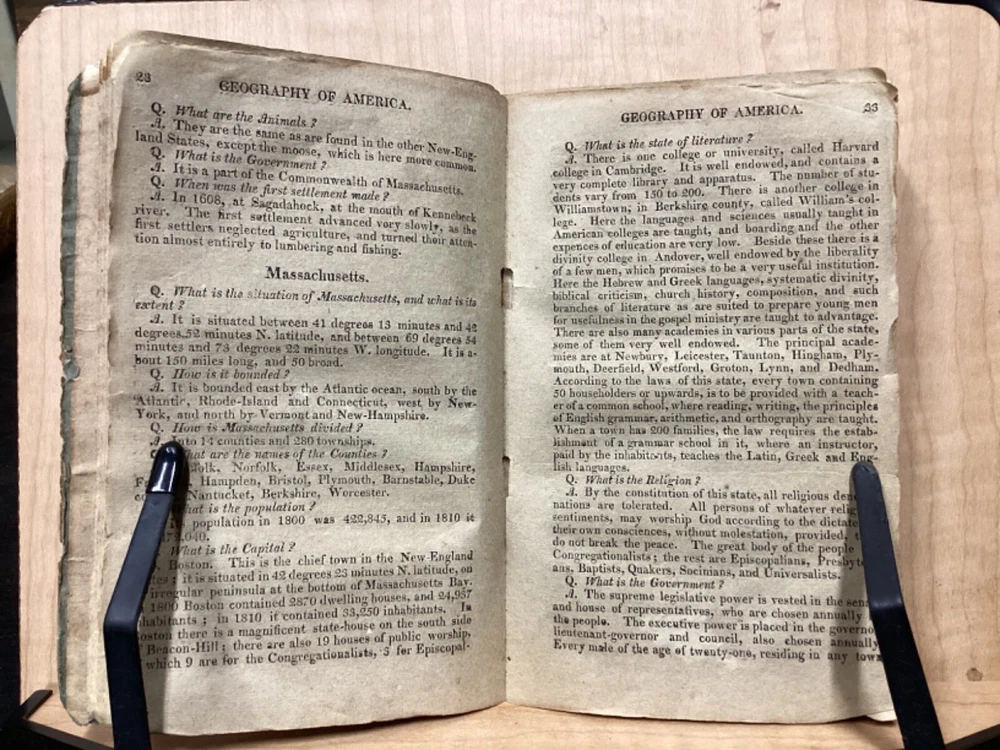 28
GEOGRAPHY OF AMERICA.
Q. What are the Animals ?
A. They are the same as are found in the other New-Eng-
land States, except the moose, which is here more common.
Q. What is the Government ?
A. It is a part of the Commonwealth of Massachusetts.
Q. When was the first settlement made ?
A. In 1608, at Sagadahock, at the mouth of Kennebeck
river. The first settlement advanced very slowly, as the
first settlers neglected agriculture, and turned their atten-
tion almost entirely to lumbering and fishing.
Massachusetts.
Q. What is the situation of Massachusetts, and what is its
extent ?
A. It is situated between 41 degrees 13 minutes and 42
degrees 52 minutes N. latitude, and between 69 degrees 54
minutes and 73 degrees 22 minutes W. longitude. It is a-
bout 150 miles long, and 50 broad.
Q. How is it bounded ?
A. It is bounded east by the Atlantic ocean, south by the
Atlantic, Rhode-Island and Connecticut, west by New-
York, and north by Vermont and New-Hampshire.
Q. How is Massachusetts divided ?
A. Into 14 counties and 280 townships.
hat are the names of the Counties ?
folk, Norfolk, Essex, Middlesex, Hampshire,
Hampden, Bristol, Plymouth, Barnstable, Duke
Nantucket, Berkshire, Worcester.
hat is the population ?
population in 1800 was 422,845, and in 1810 it
,040.
What is the Capital ?
Boston. This is the chief town in the New-England
tes ; it is situated in 42 degrees 23 minutes N. latitude, on
irregular peninsula at the bottom of Massachusetts Bay.
1800 Boston contained 2870 dwelling houses, and 24,937
habitants ; in 1810 it contained 33,250 inhabitants. In
oston there is a magnificent state-house on the south side
Beacon-Hill ; there are also 19 houses of public worship,
which 9 are for the Congregationalists, 3 for Episcopal-
GEOGRAPHY OF AMERICA.
33
Q. What is the state of literature ?
A. There is one college or university, called Harvard
college in Cambridge. It is well endowed, and contains a
very complete library and apparatus. The number of stu-
dents vary from 150 to 200. There is another college in
Williamstown, in Berkshire county, called William's col-
lege. Here the languages and sciences usually taught in
American colleges are taught, and boarding and the other
expences of education are very low. Beside these there is a
divinity college in Andover, well endowed by the liberality
of a few men, which promises to be a very useful institution.
Here the Hebrew and Greek languages, systematic divinity,
biblical criticism, church history, composition, and such
branches of literature as are suited to prepare young men
for usefulness in the gospel ministry are taught to advantage.
There are also many academies in various parts of the state,
some of them very well endowed. The principal acade-
mies are at Newbury, Leicester, Taunton, Hingham, Ply-
mouth, Deerfield, Westford, Groton, Lynn, and Dedham.
According to the laws of this state, every town containing
50 householders or upwards, is to be provided with a teach-
er of a common school, where reading, writing, the principles
of English grammar, arithmetic, and orthography are taught.
When a town has 200 families, the law requires the estab-
lishment of a grammar school in it, where an instructor,
paid by the inhabitants, teaches the Latin, Greek and Eng-
lish languages.
Q. What is the Religion ?
A. By the constitution of this state, all religious den
nations are tolerated. All persons of whatever relig
sentiments, may worship God according to the dictate
their own consciences, without molestation, provided, t
do not break the peace. The great body of the people
Congregationalists ; the rest are Episcopalians, Presbyte
ans, Baptists, Quakers, Socinians, and Universalists.
Q. What is the Government ?
A. The supreme legislative power is vested in the sen
and house of representatives, who are chosen annually
the people. The executive power is placed in the governo
lieutenant-governor and council, also chosen annually
Every male of the age of twenty-one, residing in any town